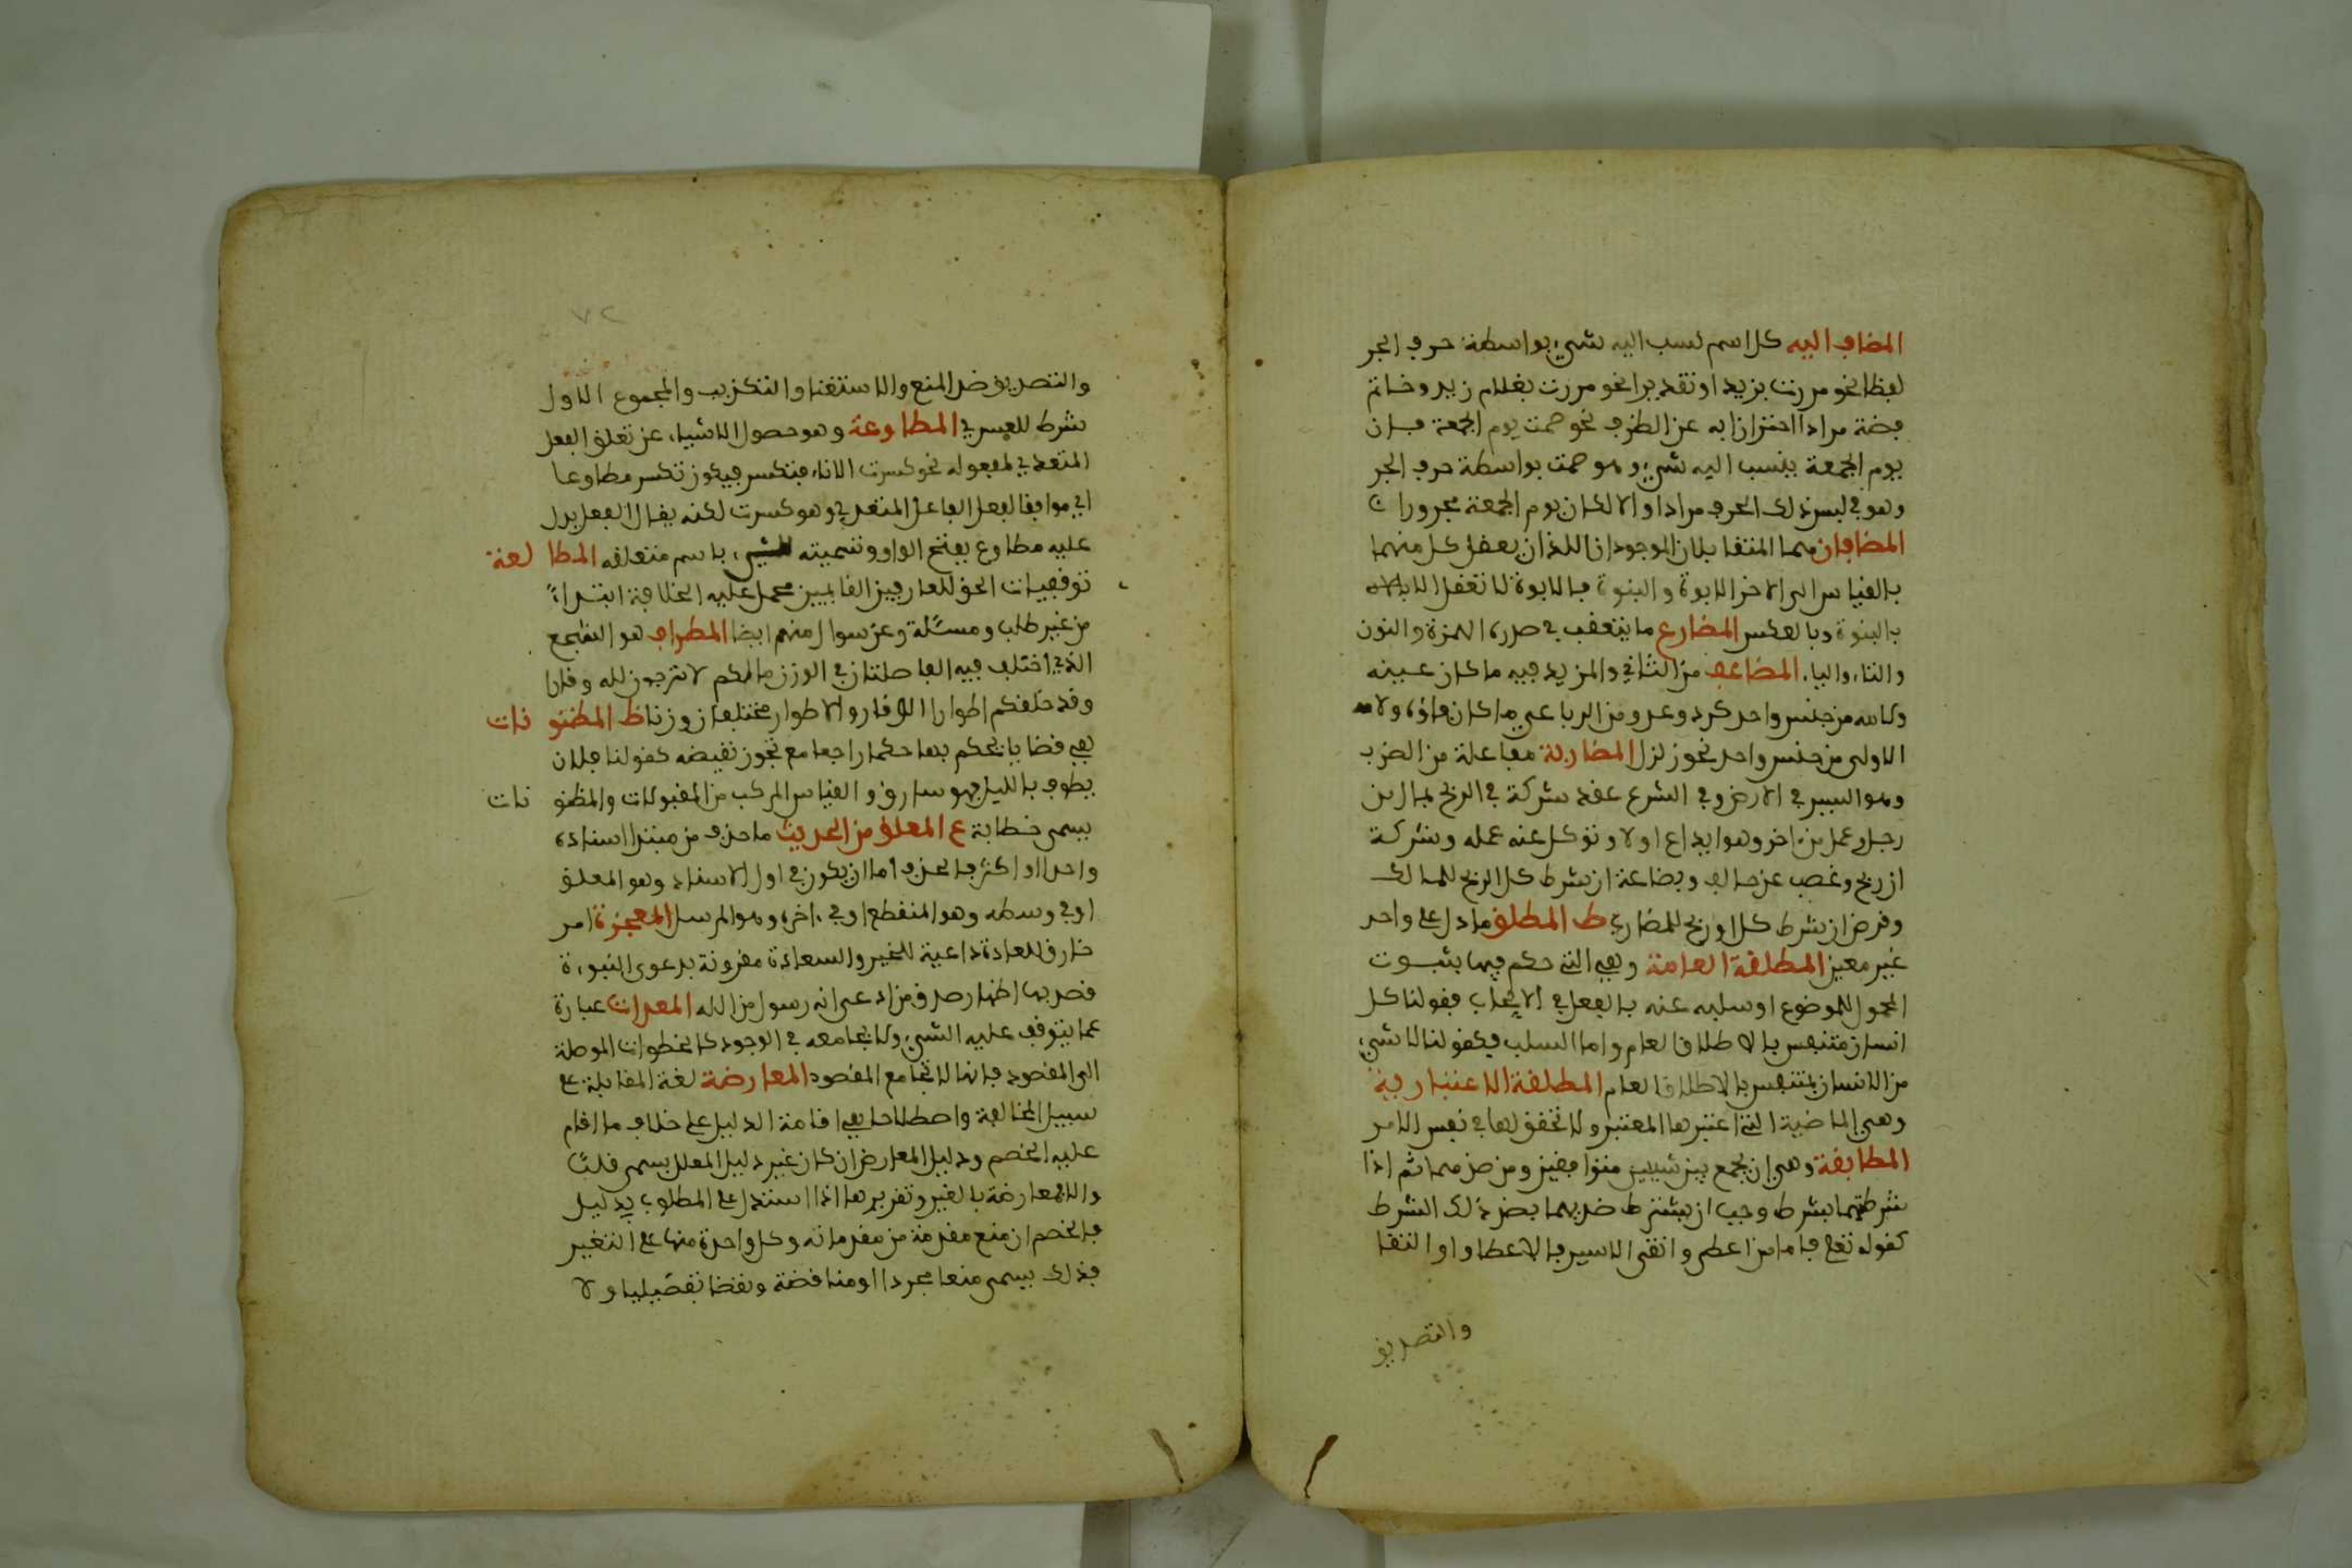 المضاف اليه كل اسم نسب اليه شيء بواسطة حرف الجر
لفظا نحو مررت بزيد او تقديرا نحو مررت بغلام زيد وخاتم
فضة مرادا احترازا به عن الظرف نحو صمت يوم الجمعة فان
يوم الجمعة ينسب اليه شيء وهو صمت بواسطة حرف الجر
وهو في ليس ذلك الحرف مرادا والا لكان يوم الجمعة مجرورا
المضافان هما المتقابلان الوجوديان اللذان يعقل كل منهما
بالقياس الى الاخر الابوة والبنوة فالابوة لا تعقل الا
بالبنوة وبالعكس المضارع ما يتعقب في صدره الهمزة والنون
والتاء والياء المضاعف من الثلاثي والمزيد فيه ما كان عينه
ولامه من جنس واحد كرد وعد ومن الرباعي ما كان فاؤه ولامه
الاولى من جنس واحد نحو زلزل المضاربة مفاعلة من الضرب
وهو السير في الارض وفي الشرع عقد شركة في الربح بمال من
رجل وعمل من اخر وهو ايداع اولا وتوكل عنه عمله وشركة
ان ربح وغصب ان خالف وبضاعة ان شرط كل الربح للمالك
وقرض ان شرط كل الربح للمضارب ط المطلق ما دل على واحد
غير معين المطلقة العامة وهي التي حكم فيها بثبوت
المحمول للموضوع او سلبه عنه بالفعل في الايجاب فقولنا كل
انسان متنفس بالاطلاق العام واما السلب فكقولنا لا شيء
من الانسان بمتنفس بالاطلاق العام المطلقة الاعتبارية
وهي الماضية التي اعتبرها المعتبر ولا تحقق لها في نفس الامر
المطابقة وهي ان يجمع بين شيئين متوافقين ومن ضديهما ثم اذا
شرطتهما بشرط وجب ان يشترط ضديهما بضد ذلك الشرط
كقوله تعلى فاما من اعطى واتقى الاسير فالاعطاء والتقا
والتصديق
٧٢
والتصديق ضد المنع والاستغنا والتكذيب والمجموع الاول
شرط لليسرى المطاوعة وهو حصول الاشياء عن تعلق الفعل
المتعدي لمفعوله نحو كسرت الاناء فتكسر فيكون تكسر مطاوعا
اي موافقا لفعل الفاعل المتعدي وهو كسرت لكنه يقال الفعل يدل
عليه مطاوع بفتح الواو وتسميته للشيء باسم متعلقه المطالعة
توفيقيات الحق للعارفين القايمين بحمل عليه الخلافة ابتداءً
من غير طلب ومسئلة وعن سوال منهم ايضا المطرف هو السجع
الذي اختلف فيه الفاصلتان في الوزن مالكم لا ترجون لله وقارا
وقد خلقكم اطوارا الوقار والاطوار مختلفان وزنا ظ المظنونات
هي قضايا يحكم بها حكما راجحا مع تجوز نقيضه كقولنا فلان
يطوف بالليل فهو سارق والقياس المركب من المقبولات والمظنونات
يسمى خطابة ع المعلق من الحديث ما حذف من مبتدا اسناده
واحدا او اكثر فالحذف اما ان يكون في اول الاسناد وهو المعلق
او في وسطه وهو المنقطع او في اخره وهو المرسل المعجزة امر
خارق للعادة داعية للخير والسعادة مقرونة بدعوى النبوءة
قصد بها اظهار صدق من ادعى انه رسول من الله المعدات عبارة
عما يتوقف عليه الشيء ولا يجامعه في الوجود كالخطوات الموصلة
الى المقصود فانها لا تجامع المقصود المعارضة لغة المقابلة على
سبيل المخالفة واصطلاحا هي اقامة الدليل على خلاف ما اقام
عليه الخصم ودليل المعارض ان كان غير دليل المعلل يسمى قلبا
والا فمعارضة بالغير وتقريرها اذا استدل على المطلوب بدليل
فالخصم ان منع مقدمة من مقدماته وكل واحدة منها على التعيير
فذلك يسمى منعا مجردا او مناقضة ونقضا تفصيليا ولا